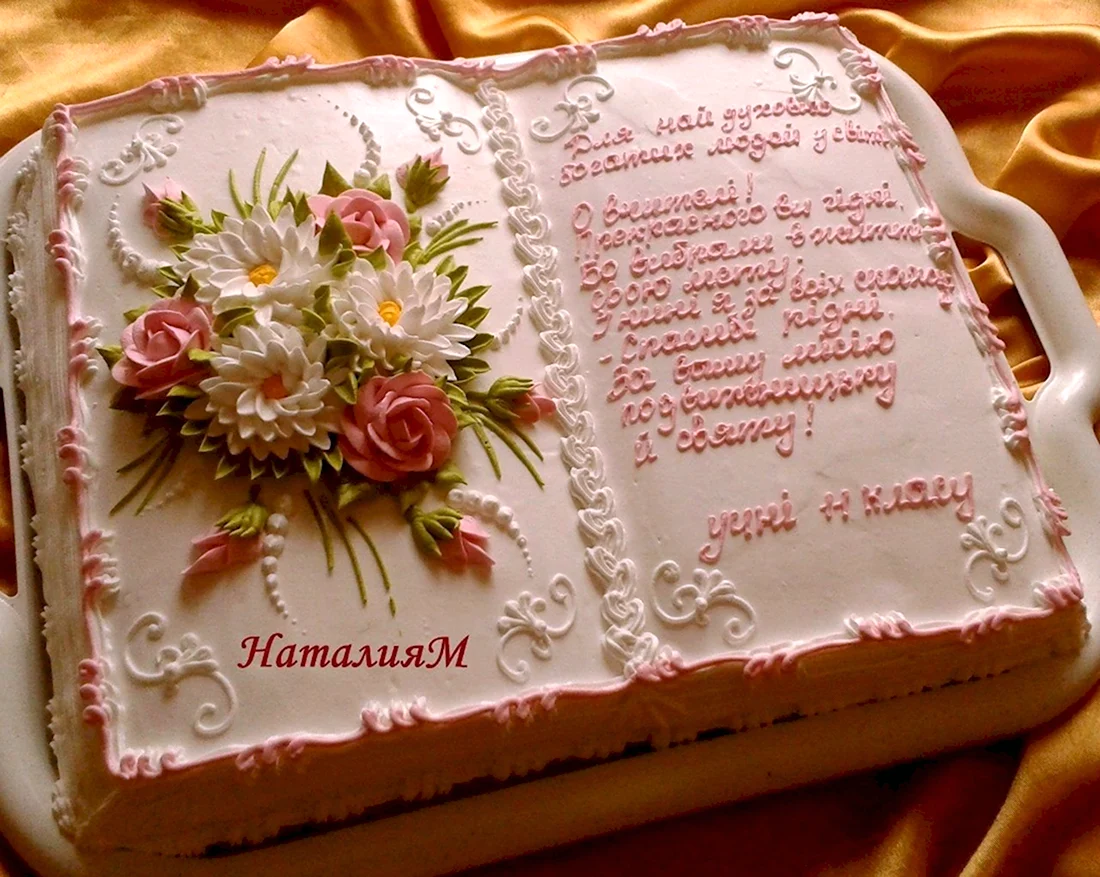 Для най духовно
богатих людей у світі
О вчителі!
Прекрасного ви гідні,
Бо вибрали в житті
свою мету;
Уклін я за всіх
- спасибі рідні,
За вашу місію
подвижницьку
й святу!
учні 11 класу
НаталияМ